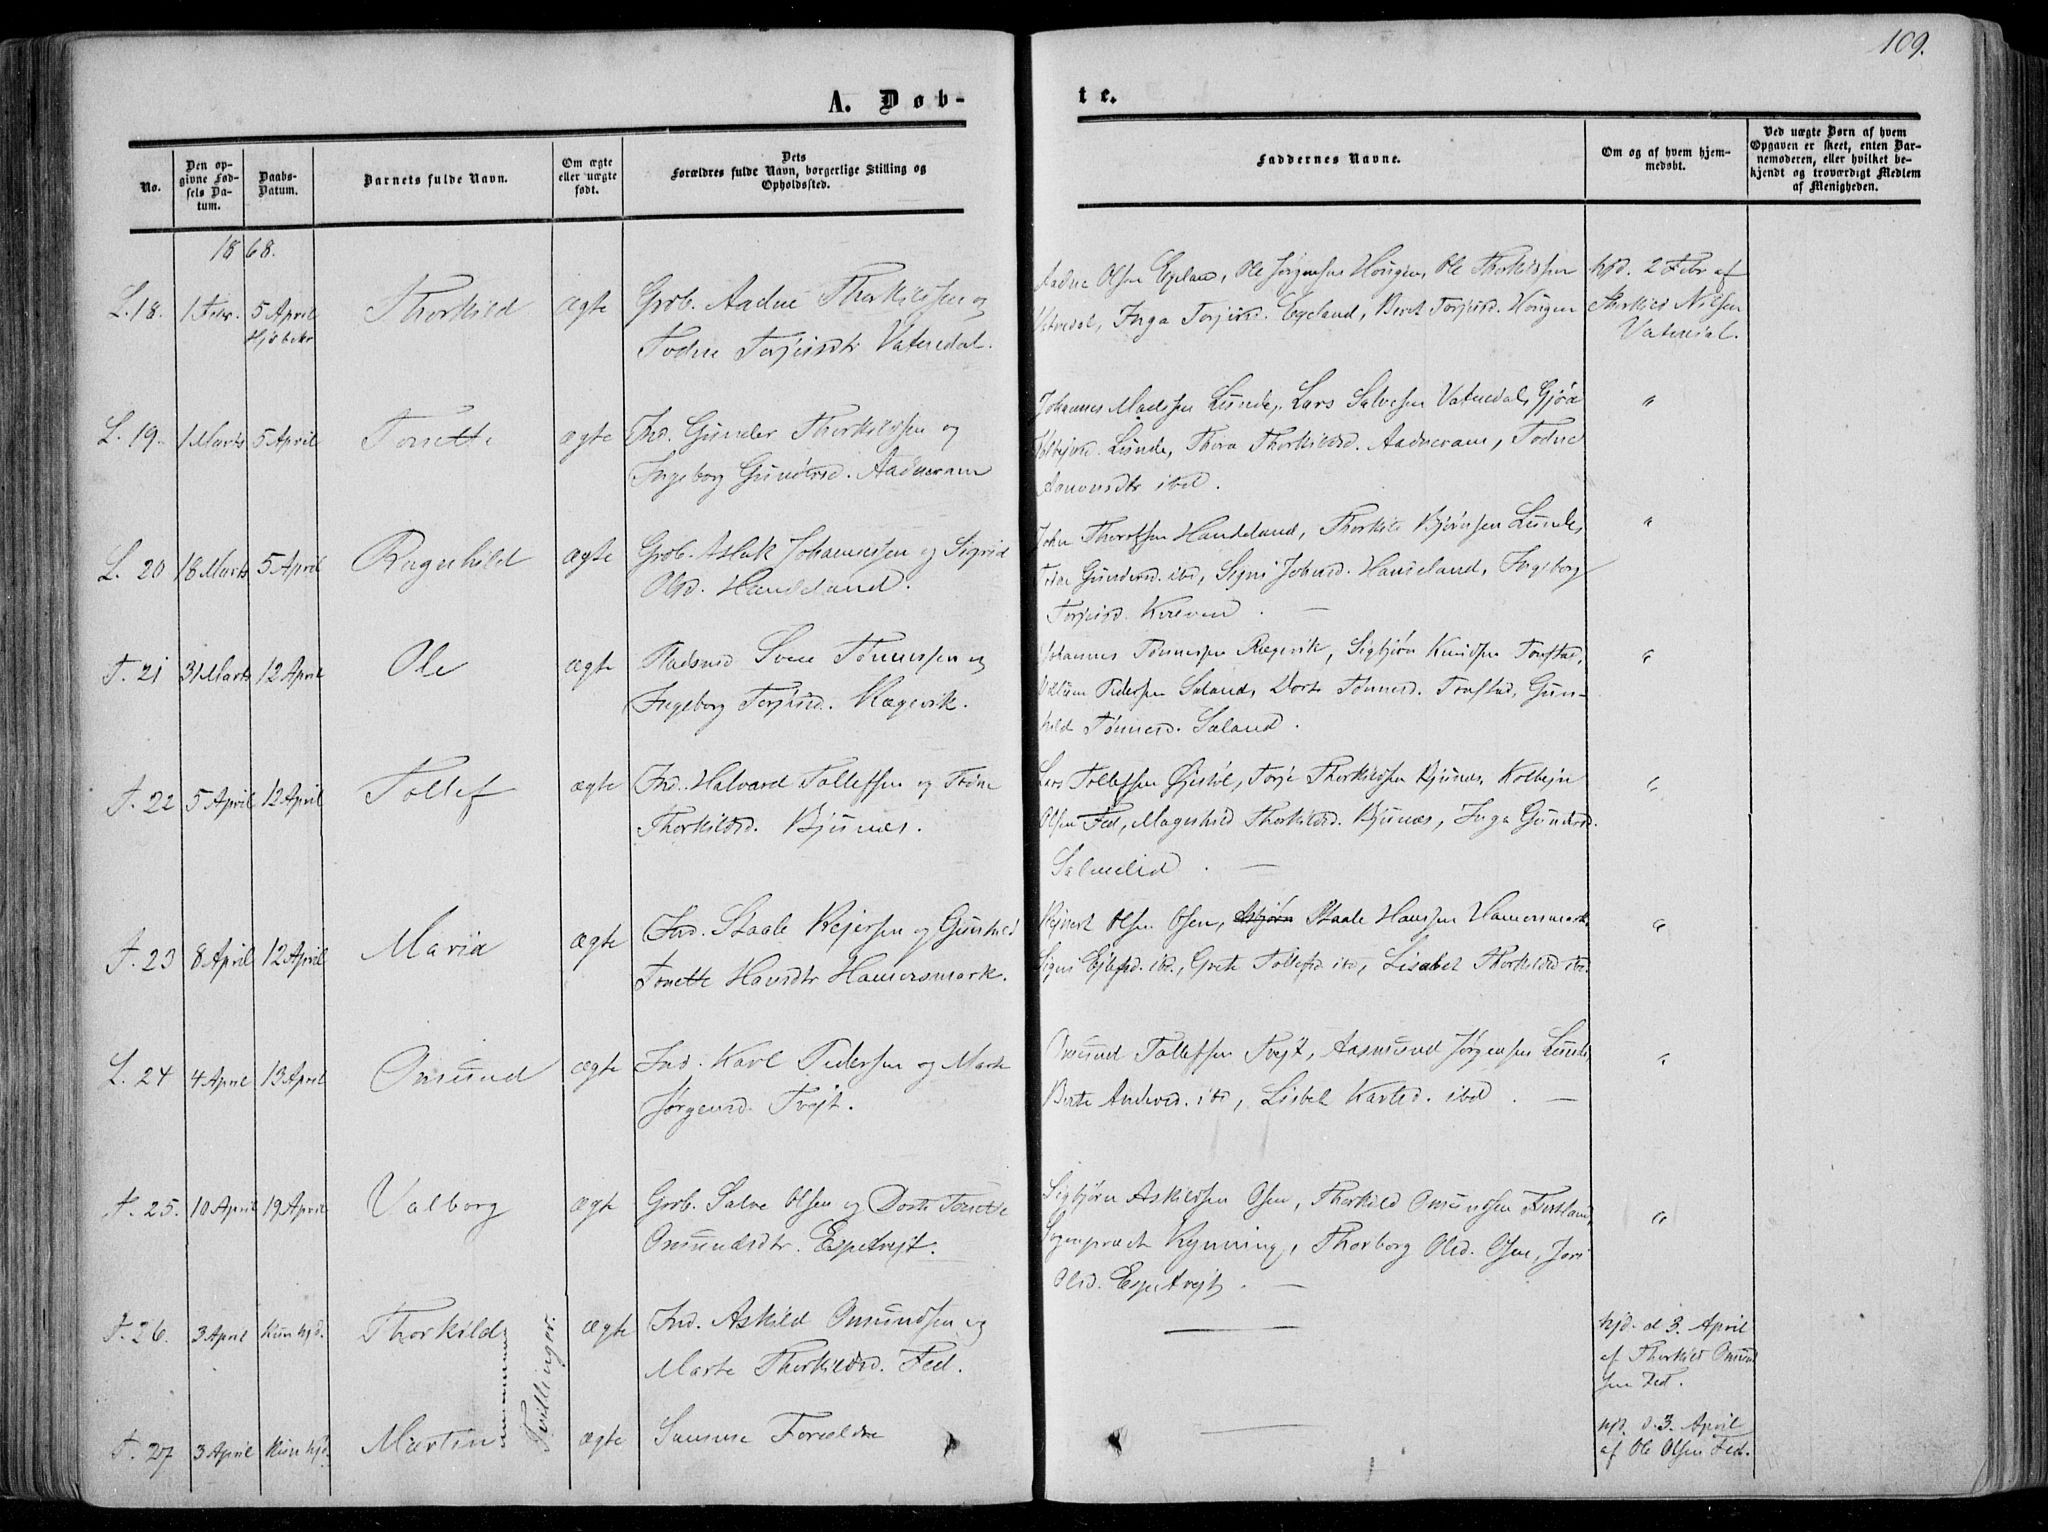 109.
A. Døb-
te.
No.
Den opgivne Fødsels Datum.
Daabs-Datum.
Barnets fulde Navn.
Om ægte eller uægte født.
Dets Forældres fulde Navn, borgerlige Stilling og Opholdssted.
Faddernes Navne.
Om og af hvem hjemmedøbt.
Ved uægte Børn af hvem Opgaven er skeet, enten Barnemoderen, eller hvilket bekjendt og troværdigt Medlem af Menigheden.
1868.
L. 18. 1 Febr. 5 April Thorkild ægte Grb. Aadne Thorkildsen og
Todne Torjusdtr Vatnedal.
Aadne Olsen Egeland, Ole Jørgensen Hougen, Ole Thorkildsen
Vatnedal, Inga Torjusd. Egeland, Beret Torjusd. Hougen
hjd. 2 Febr af
Thorkild Nilsen
Vatnedal.
L. 19. 1 Marts 5 April Tonette ægte Ind. Gunder Thorkildsen og
Ingeborg Gundersd. Aadneram
Johannes Madssen Lunde, Lars Salvesen Vatnedal, Gjøa
Lunde, Thora Thorkildsd. Aadneram, Todne
Aanensdtr ibd.
"
L. 20 18 Marts 5 April Ragnhild ægte Grb. Aslak Johannessen og Sigrid
Olsd. Handeland.
John Handeland, Thorkild Bjørnsen Lunde,
Gundersd. ibd, Signi Johnsd. Handeland, Ingeborg
Torjusd. Kvæven. —
"
T. 21 31 Marts 12 April Ole ægte Pladsmd Sven Tønnessen og
Ingeborg Torjusd. Rægevik.
Johannes Tønnessen Rægevik, Sigbjørn Knudsen Tonstad,
Pedersen Saland, Dorte Tønnesd. Tonstad, Gun-
hild Tønnesd. Saland.
"
T. 22 5 April 12 April Tollef ægte Ind. Halvard Tollefsen og Todne
Thorkildsd. Bjunes.
Lars Tollefsen Øjestøl, Torje Thorkildsen Bjunes, Kolbejn
Olsen Fed, Magnhild Thorkildsd. Bjunæs, Inga Gundersd.
Salmelid. —
"
T. 23 8 April 12 April Maria ægte Ind. Staale Rejersen og Gunhild
Tonette Hansdtr Hamersmark.
Rejnert Olsen Osen, Asbjørn Staale Hansen Hamersmark,
Signi Ejlefsd. ibd., Grete Tollefsd ibd, Lisabet Thorkildsd ibd.
"
L. 24 4 April 13 April Omund ægte Ind. Karl Pedersen og Marte
Jørgensd. Tvejt.
Omund Tollefsen Tvejt, Aasmund Jørgensen Lunde,
Berte ibd, Lisbet Karlsd. ibd. —
"
T. 25. 10 April 19 April Valborg ægte Grb. Salve Olsen og Dorte Tonette
Omundsdtr. Espetvejt.
Sigbjørn Askildsen Osen, Thorkild Omundsen Fintland,
Sogneprest Rynning, Thorborg Olsd. Osen, Jori
Olsd. Espetvejt. —
"
T. 26. 3 April Kun hjd. Thorkild ægte Ind. Askild Omundsen og
Marte Thorkildsd. Fed.
—
hjd. d 3. April
af Thorkild Omund
sen Fed.
Tvillinger.
T. 27 3 April Kun hjd. Martin ægte Samme Forældre
—
hjd. d. 3. April
af Ole Olsen Fed.